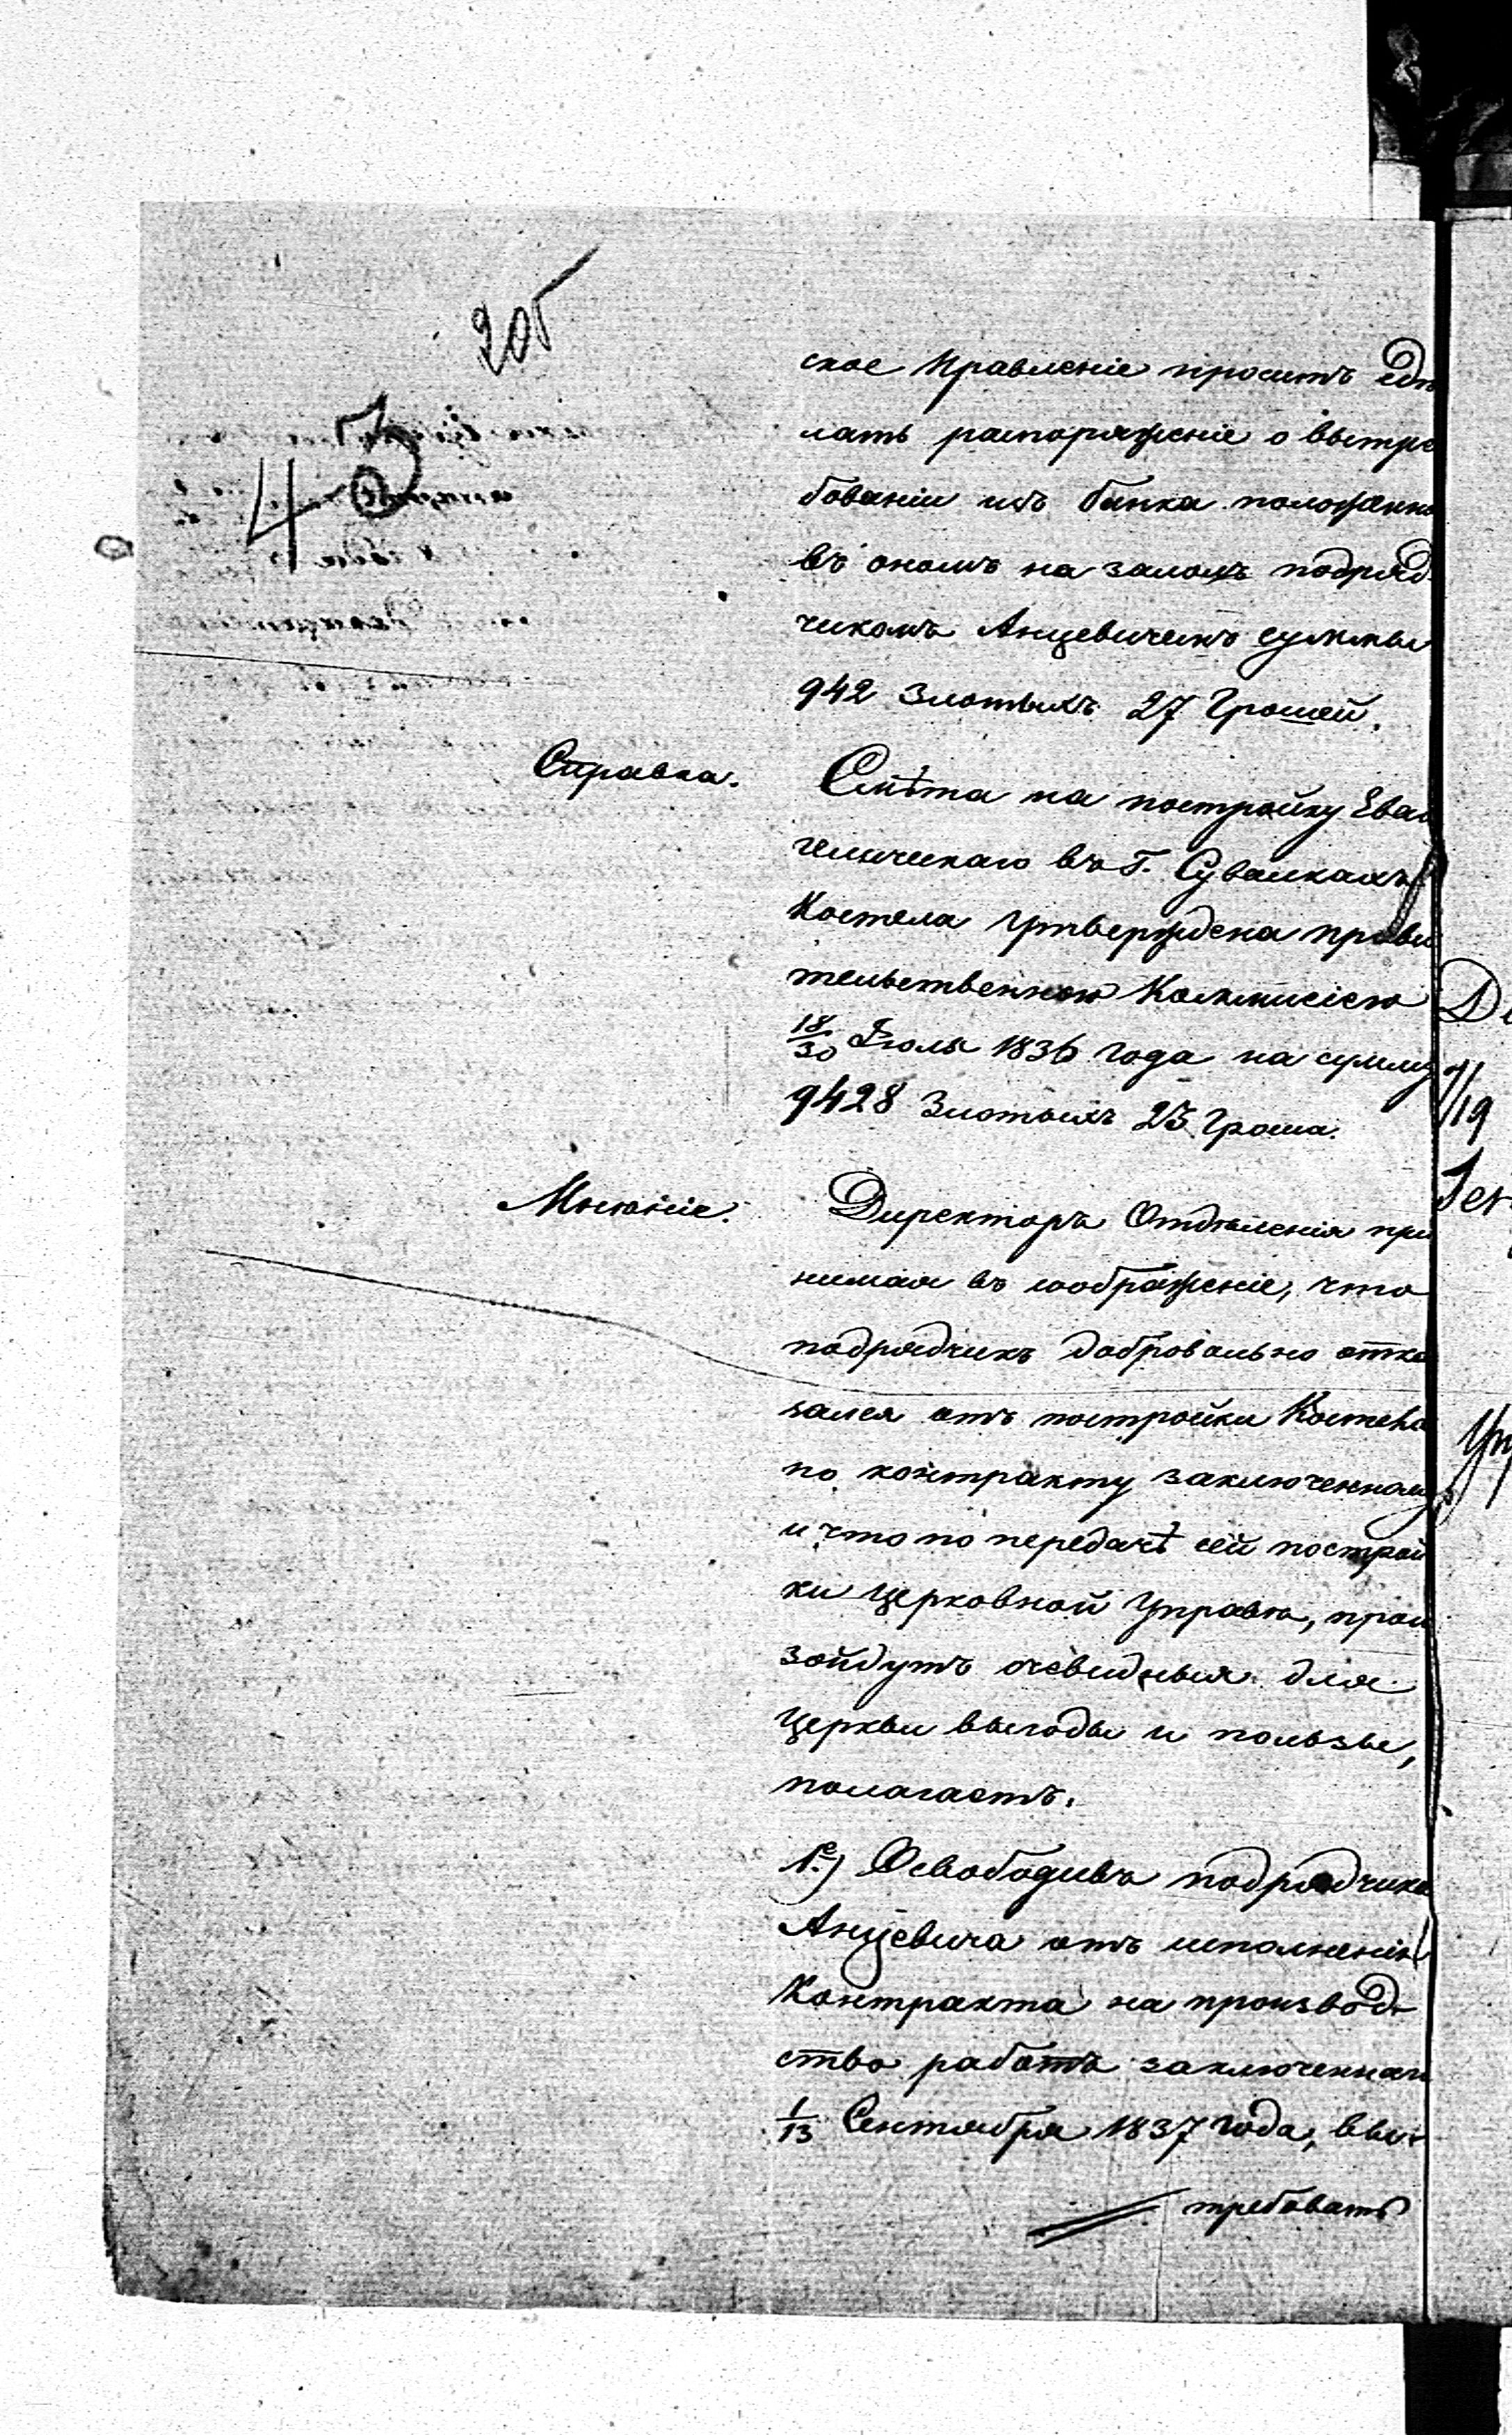 205
43
ское Правленіе проситъ сдѣ
лать распоряженіе о вытре
бованіи изъ банка положенно
въ ономъ на залогъ подряд
чикомъ Анцевичемъ суммы
942 Злотыхъ 27 Грошей.
Справка.
Смѣта на постройку Еван
гелическаго въ Г. Сувалкахъ
Костела утверждена прави
тельственною Коммисіею
18/30 Іюля 1836 года на сумму
9428 Злотыхъ 23 Гроша.
Мнѣніе.
Директоръ Отдѣленія при
нимая въ соображеніе, что
подрядчикъ добровольно отка
зался отъ постройки Костела
по контракту заключенному
и что по передачѣ сей построй
ки Церковной Управѣ, прои
зойдутъ очевидныя для
Церкви выгоды и пользы,
полагаетъ.
1е) Освободивъ подрядчика
Анцевича отъ исполненія
Контракта на производ
ство работъ заключеннаго
1/13 Сентября 1837 года, вы-
требовать